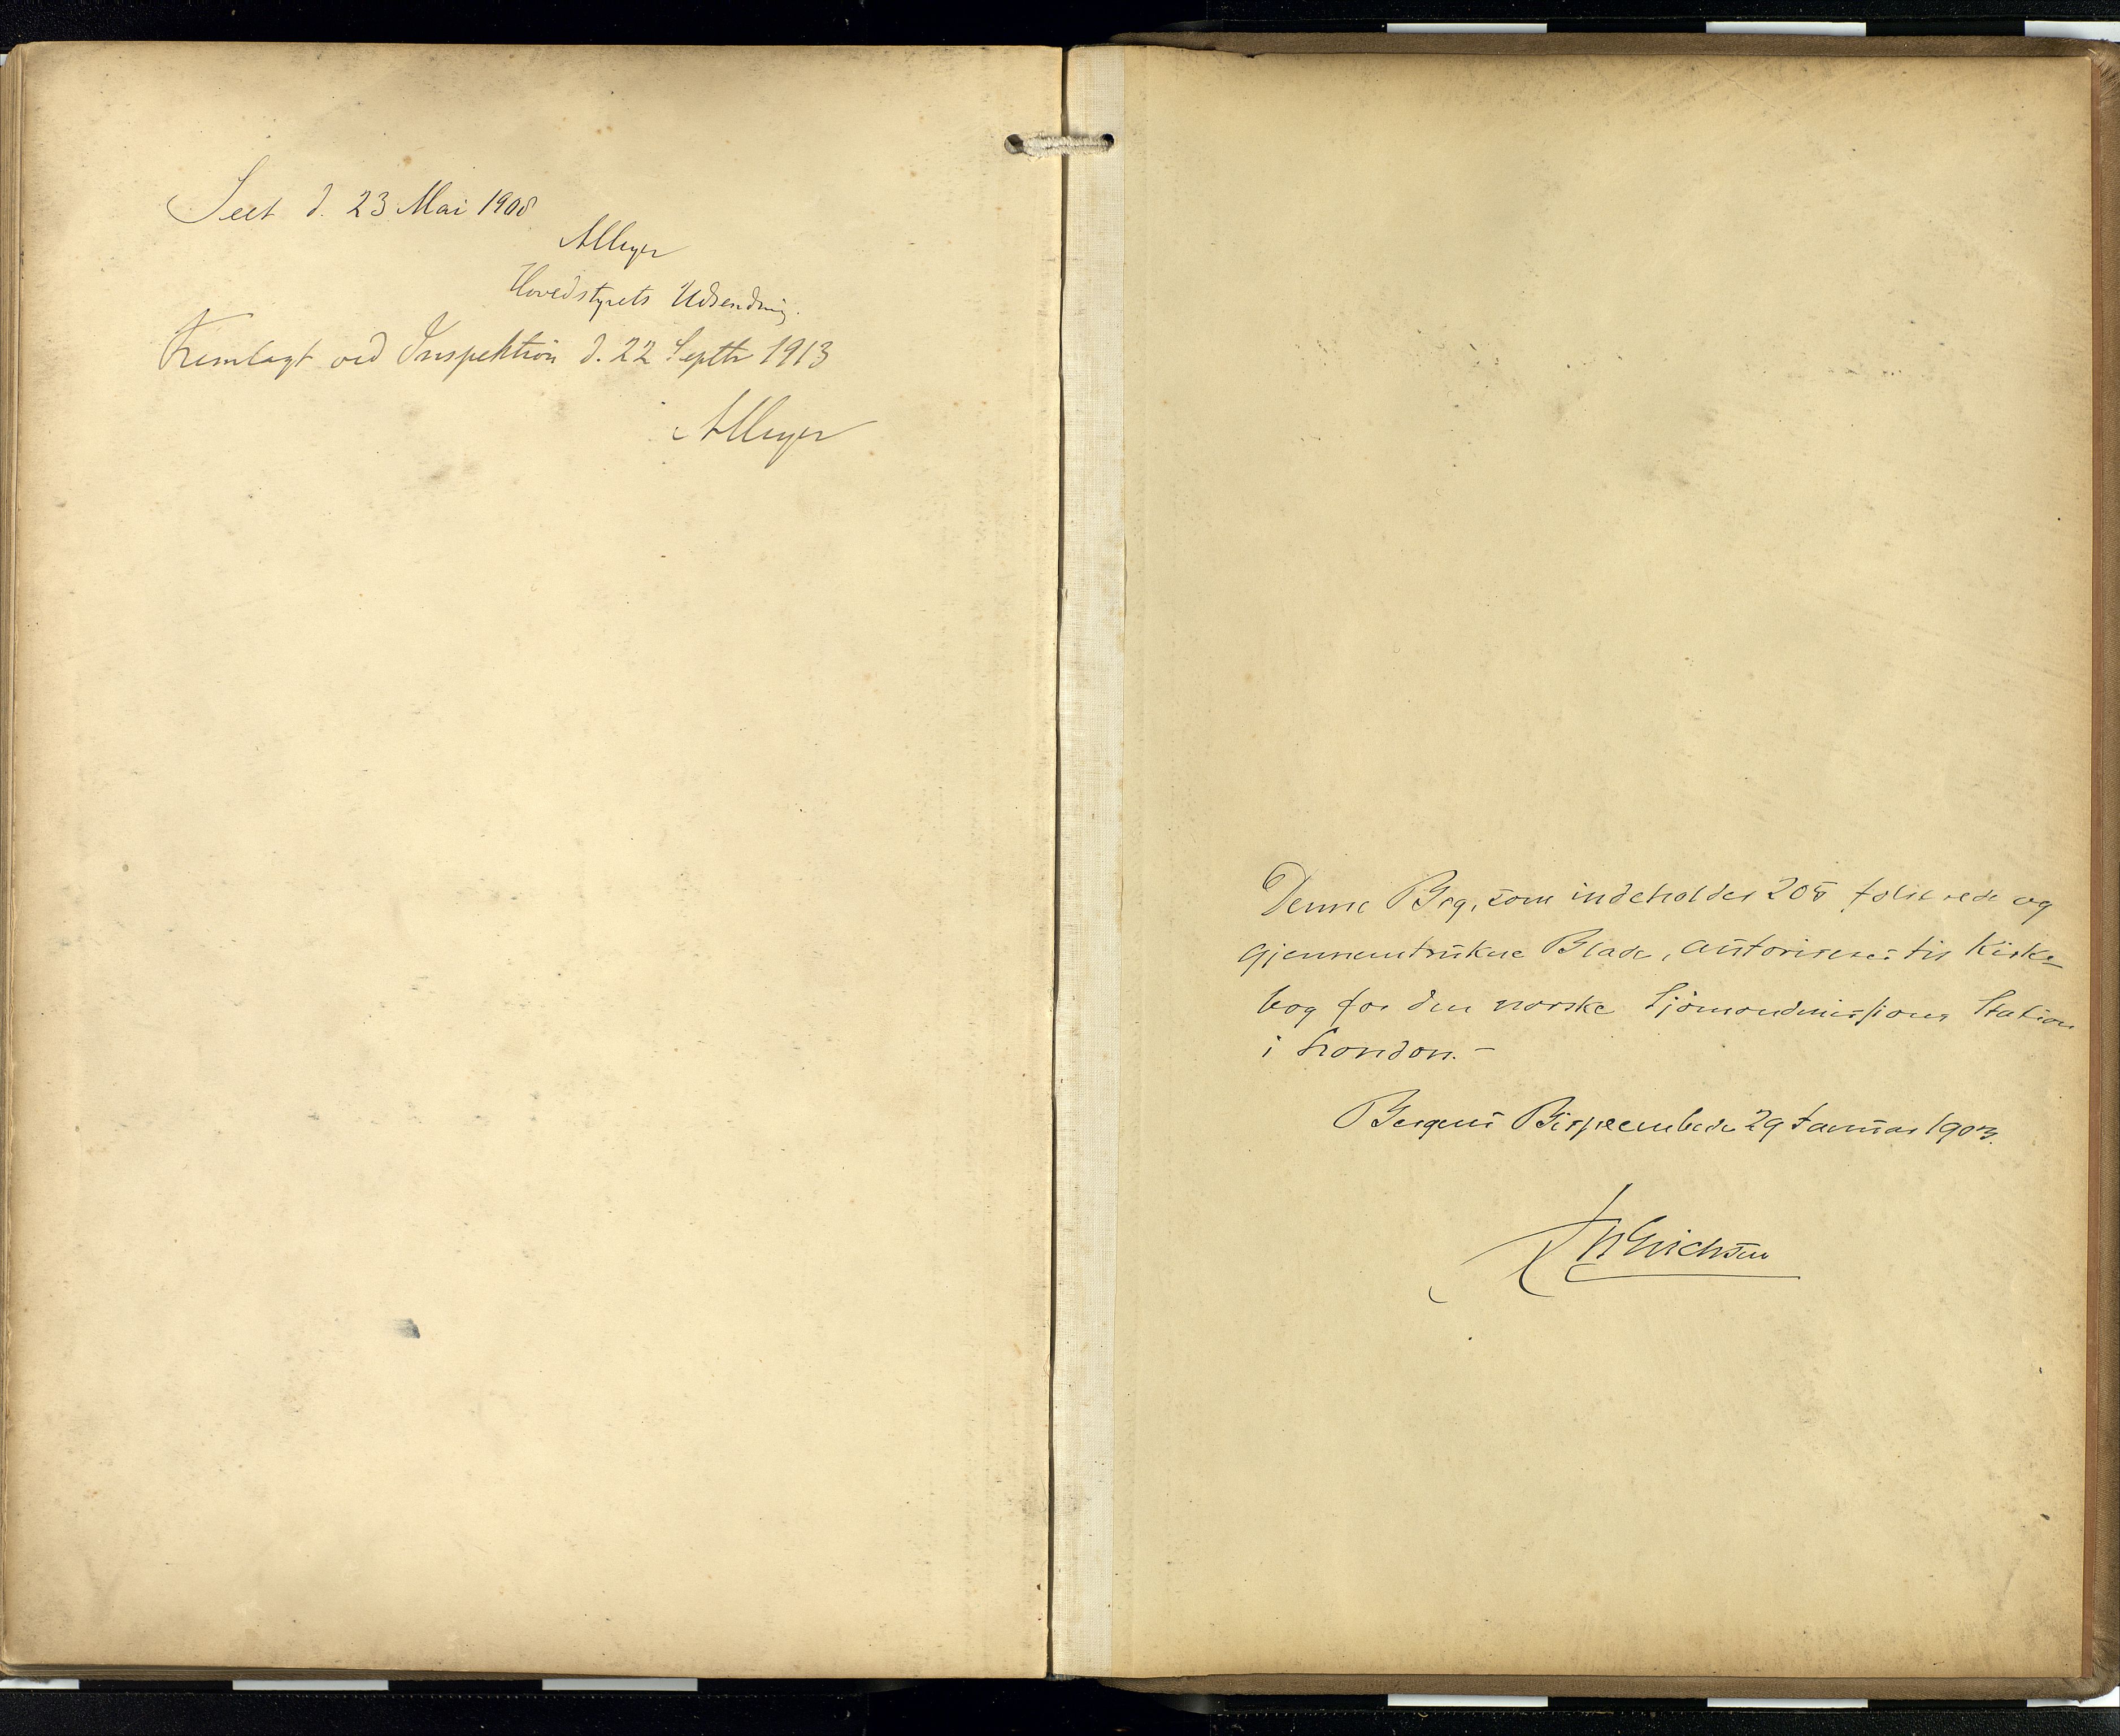 Seet d. 23 Mai 1908
AMeyer
Hovedstyrets Udsending.
Fremlagt ved Inspektion d. 22 Septbr 1913
AMeyer
Denne Bog, som indeholder 205 folierede og
gjennemtrukne Blade, autoriseres til Kirke-
bog for den norske Sjömandsmissions Station
i London. -
Bergens Bispeembede 29 Januar 1903.
Erichsen